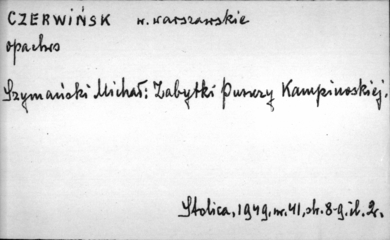 CZERWIŃSK w. warszawskie
opactwo
Szymański Michał: Zabytki Puszczy Kampinoskiej.
Stolica, 1949, nr. 41, str. 8-9, il. 2.